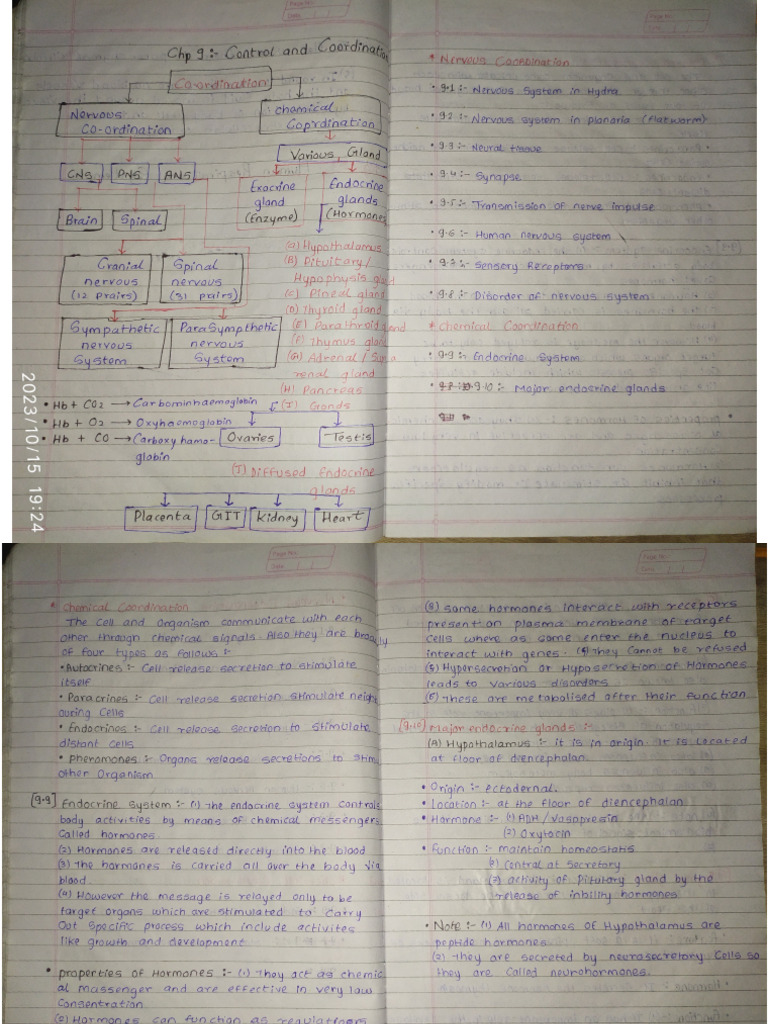 Page No.
Date
Chp 9:- Control and Coordination
Co-ordination
Nervous
Co-ordination
Chamical
Coprdination
Various, Gland
CNS
PNS
ANS
Exocrine
gland
(Enzyme)
Endocrine
glands
(Hormones
Brain
Spinal
Cranial
nervous
(12 Prairs)
Spinal
nervous
(31 pairs)
Sympathetic
nervous
System
ParaSympthetic
nervous
System
(a) Hypothalamus
(B) Pituitory/
Hypophysis gland
(C) Pineal gland
(D) Thyroid gland
(E) Parathroid gland
(F) Thymus gland
(G) Adrenal / Supra
renal gland
(H) Pancreas
(I) Gonds
• Hb + CO2 → Carbominhaemoglobin
• Hb + O2 → Oxyhaemoglobin
• Hb + CO → Carboxyhamo-
globin
Ovaries
Testis
(J) Diffused Endocrine
glands
Placenta
GIT
Kidney
Heart
2023/10/15 19:24
Page No.
Date
* Nervous Coordination
• 9.1:- Nervous System in Hydra
• 9.2:- Nervous system in planaria (flatworm)
• 9.3:- Neural tissue
• 9.4:- Synapse
• 9.5:- Transmission of nerve impulse
• 9.6:- Human nervous system
• 9.7:- Sensory Receptors
• 9.8:- Disorder of nervous system
* Chemical Coordination
• 9.9:- Endocrine System
• 9.10:- Major endocrine glands
Page No.
Date
* Chemical Coordination
The Cell and Organism communicate with each
other through chemical signals. Also they are broadly
of four types as follows:-
• Autocrines:- Cell release secretion to stimulate
itself
• Paracrines:- Cell release secretion stimulate neigh
ouring Cells
• Endocrines:- Cell release secretion to stimulate
distant cells
• Pheramones:- Organs release secretions to stim
other Organism
[9.9] Endocrine System:- (1) The endocrine system controls
body activities by means of chemical messengers
Called hormones.
(2) Hormones are released directly into the blood
(3) The hormones is carried all over the body via
blood.
(4) However the message is relayed only to be
target organs which are stimulated to carry
Out Specific process which include activites
like growth and development.
• properties of Hormones:- (1) They act as chemic
al massenger and are effective in very low
Consentration.
(2) Hormones can function as regulators
Page No.
Date
(3) Some hormones interact with receptors
present on plasma membrane of target
Cells where as some enter the nucleus to
interact with genes. (4) They Cannot be refused
(5) Hypersecretian or Hyposecretion of Hormones
leads to various disorders
(6) These are metabolised after their function
[9.10] Major endocrine glands:-
(A) Hypothalamus:- it is in origin. It is Located
at floor of diencephalan.
• Origin:- ectodernal.
• Location:- at the floor of diencephalan
• Hormone:- (1) ADH / Vasopresin
(2) Oxytocin
• function:- maintain homeostatis
(2) Central at Secretory
(3) activity of Pitutary gland by the
release of inbility hormones
• Note:- (1) All hormones of Hypothalamus are
peptide hormones.
(2) They are secreted by neurosecretary Cells so
they are Called neurohormones.